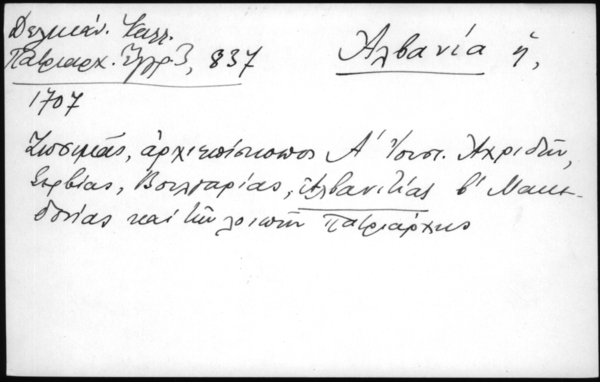 Δελικάν. Καλλ.
Πατριαρχ. Ἔγγρ 3, 837
Ἀλβανία ἡ,
1707
Ζωσιμᾶς, ἀρχιεπίσκοπος Α′ Ἰουστ. Ἀχριδῶν,
Σερβίας, Βουλγαρίας, Ἀλβανιτίας β′ Μακε-
δονίας καὶ τῶν λοιπῶν Πατριάρχης